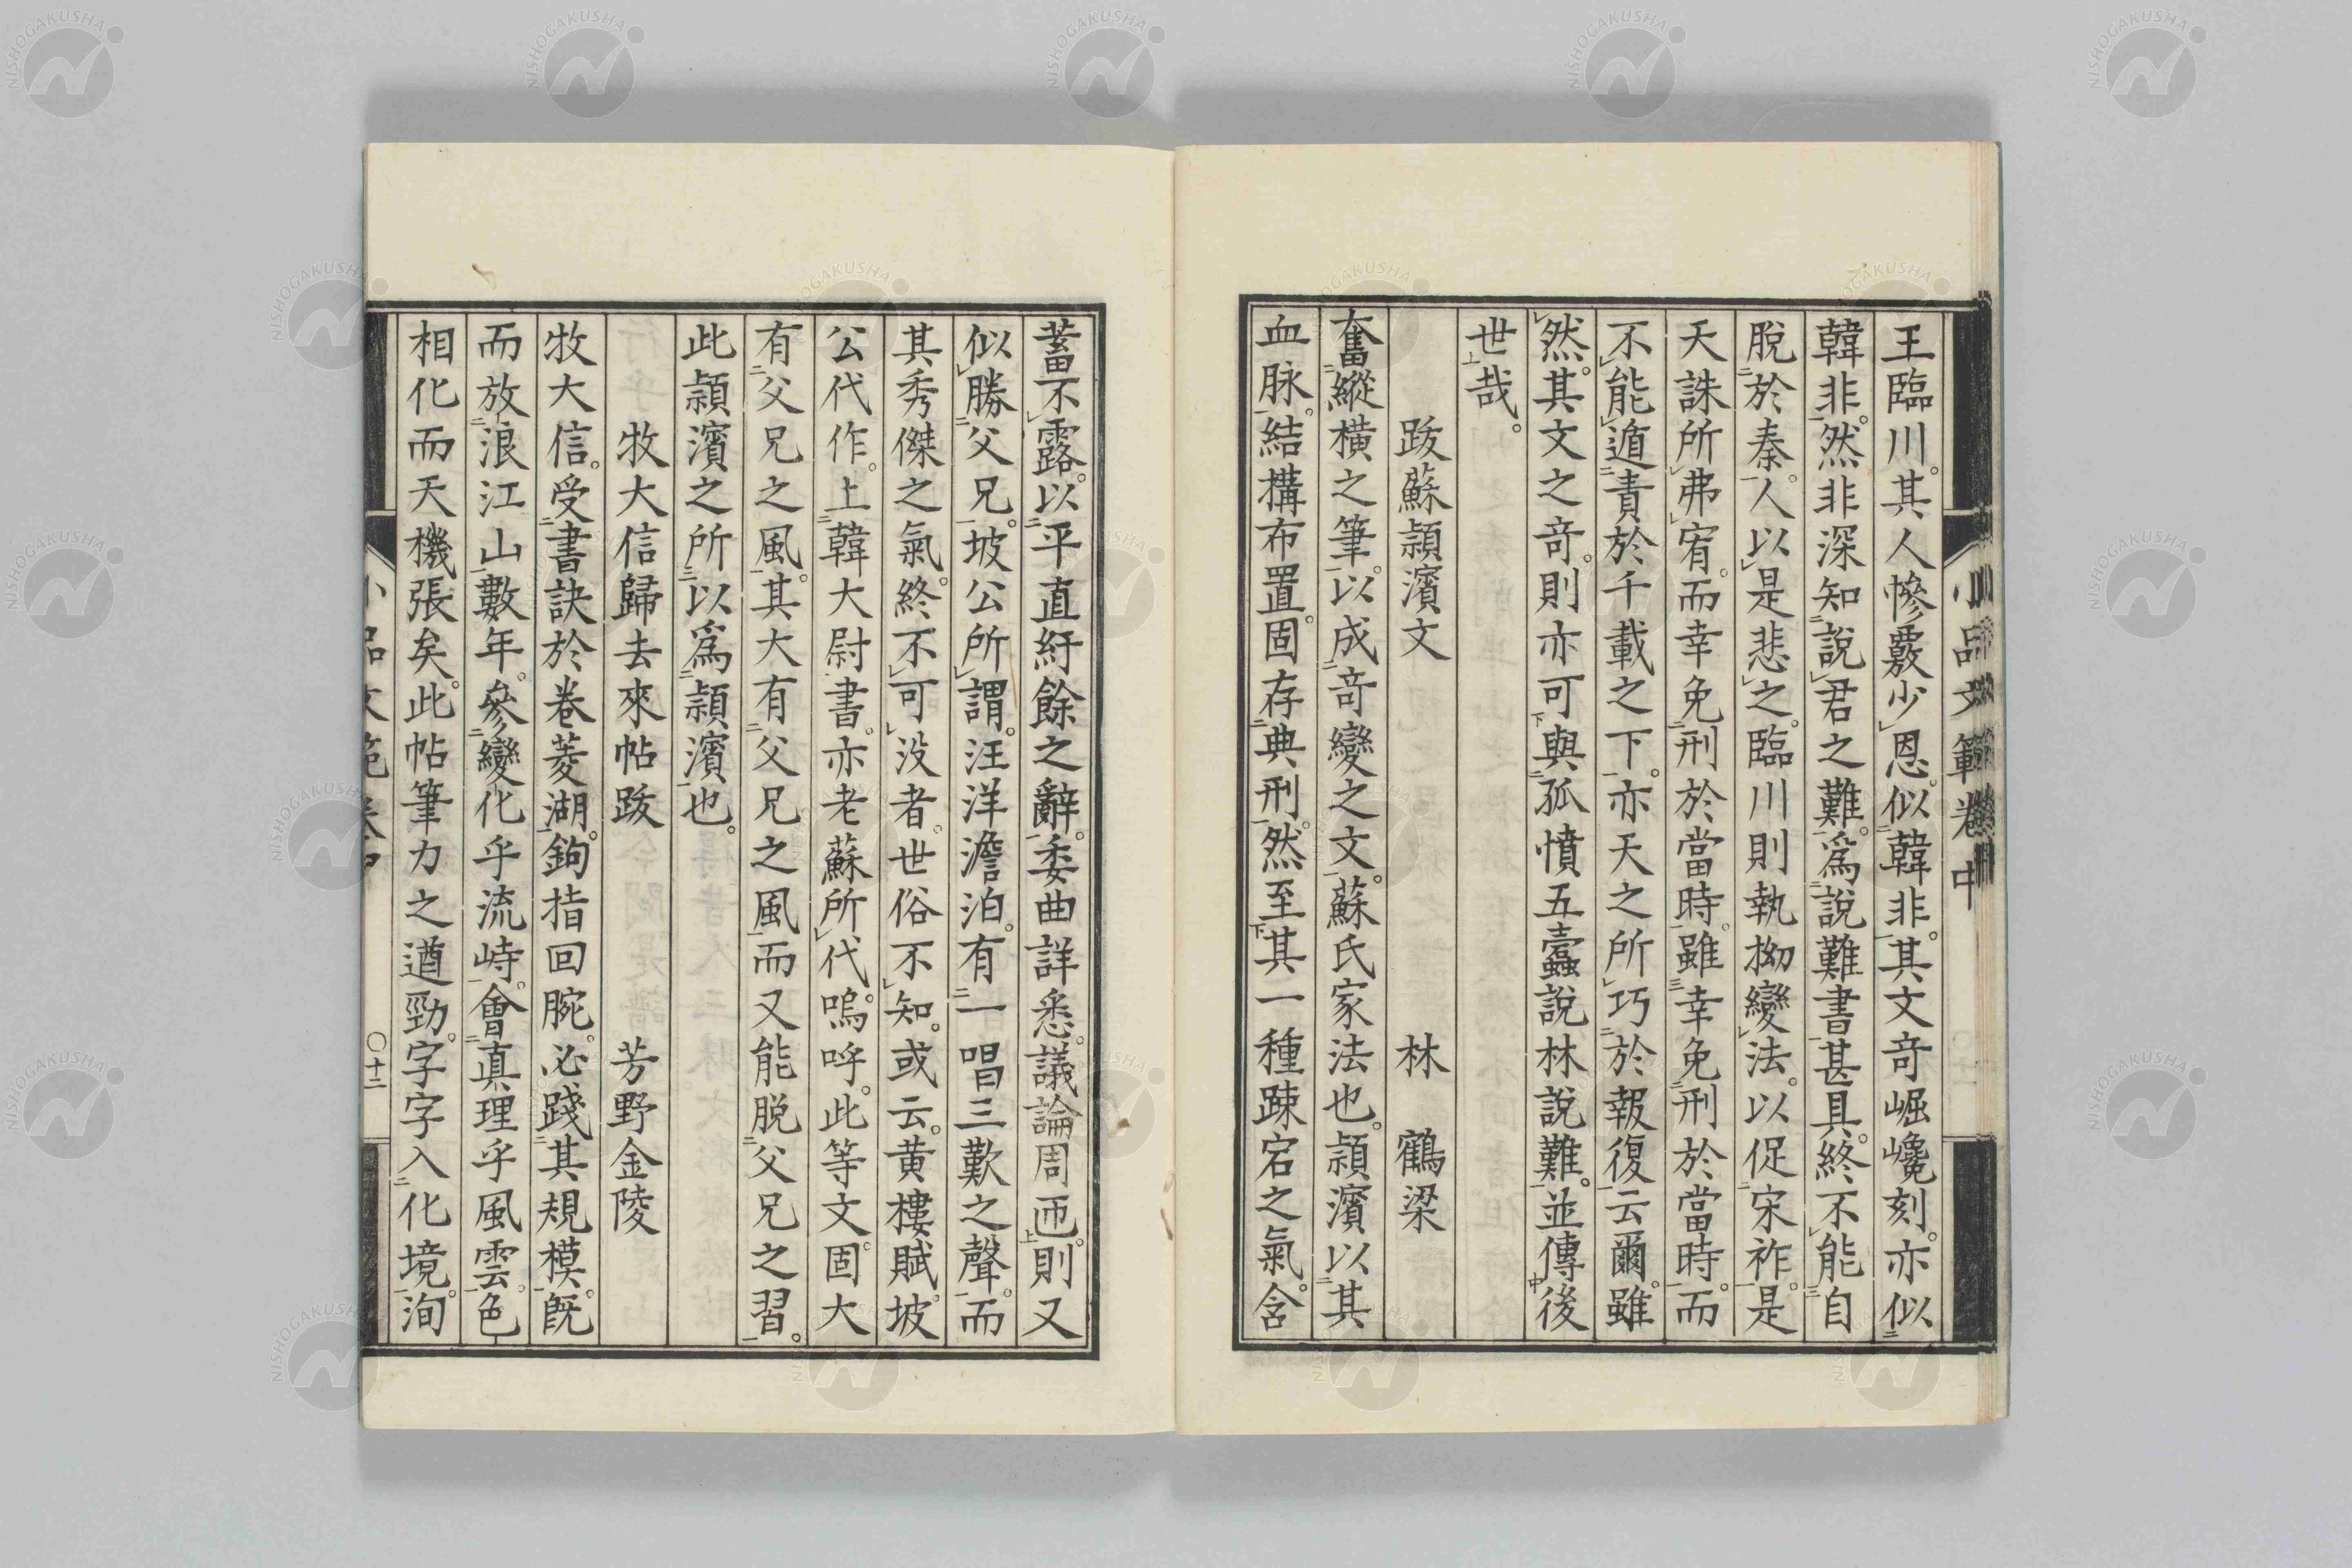 王臨川。其人慘覈少恩。似韓非。其文奇崛巉刻。亦似
韓非。然非深知說君之難。爲說難書甚具。終不能自
脫於秦。人以是悲之。臨川則執拗變法。以促宋祚。是
天誅所弗宥。而幸免刑於當時。雖幸免刑於當時。而
不能遁責於千載之下。亦天之所巧於報復云爾。雖
然。其文之奇。則亦可與孤憤五蠹說林說難。並傳後
世哉。
跋蘇潁濱文 林 鶴梁
奮縱橫之筆。以成奇變之文。蘇氏家法也。潁濱以其
血脉。結構布置。固存典刑。然至其一種踈宕之氣。含
小品文範卷中
蓄不露。以平直紆餘之辭。委曲詳悉。議論周匝。則又
似勝父兄。坡公所謂。汪洋澹泊。有一唱三歎之聲。而
其秀傑之氣。終不可沒者。世俗不知。或云。黃樓賦。坡
公代作。上韓大尉書。亦老蘇所代。嗚呼。此等文。固大
有父兄之風。其大有父兄之風。而又能脫父兄之習。
此潁濱之所以爲潁濱也。
牧大信歸去來帖跋 芳野金陵
牧大信。受書訣於卷菱湖。鉤指回腕。必踐其規模。既
而放浪江山數年。參變化乎流峙。會真理乎風雲。色
相化而天機張矣。此帖筆力之遒勁。字字入化境。洵
小品文範卷中 〇十二